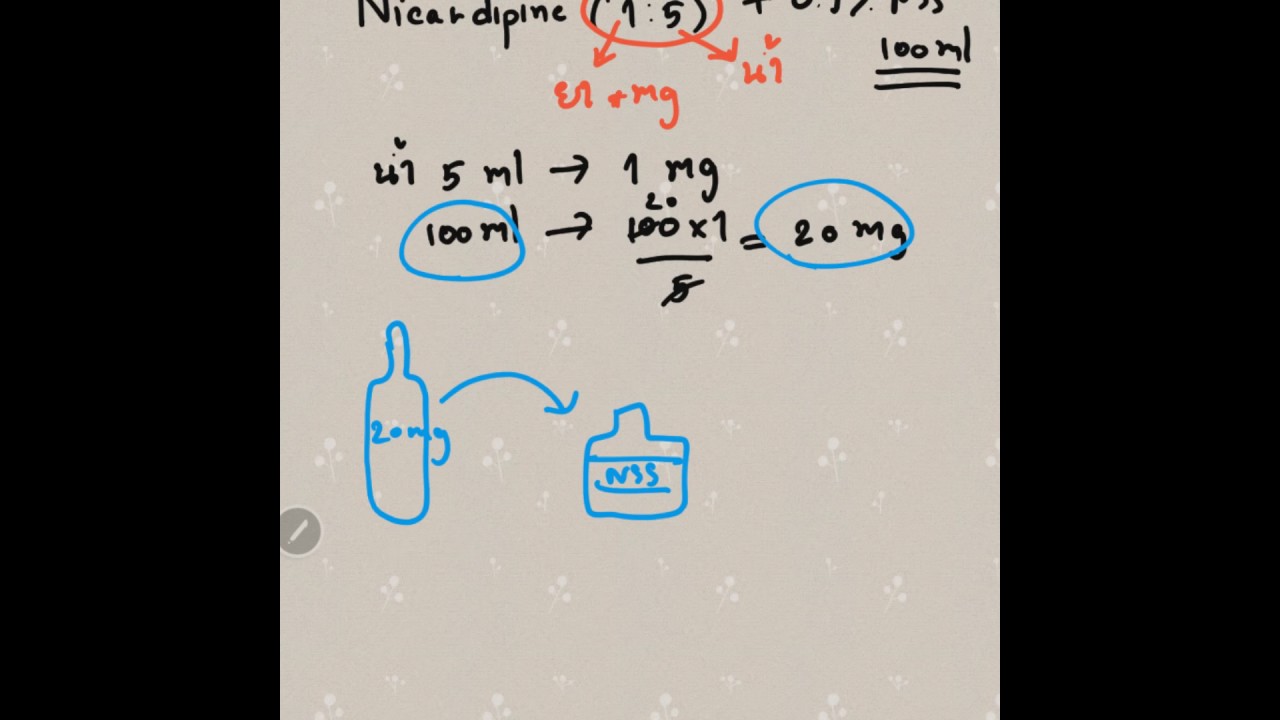 Nicardipine (1:5) + 0.9% NSS
100 ml
ยา → mg
น้ำ
น้ำ 5 ml → 1 mg
20
100 ml → 100 x 1 = 20 mg
5
20 mg
NSS